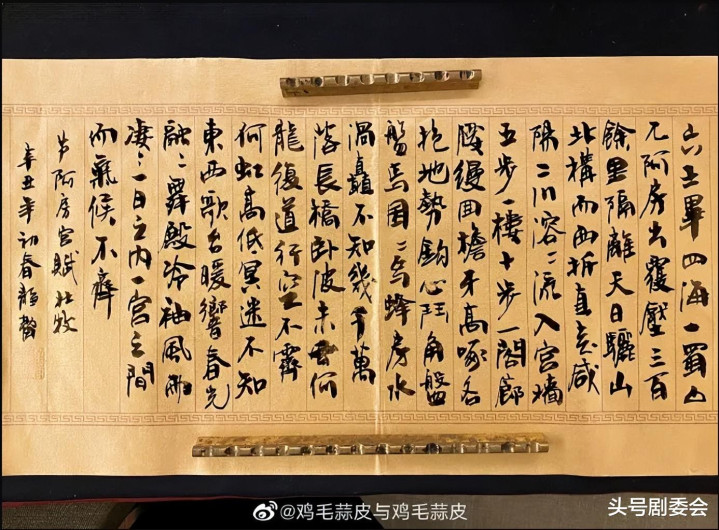 六王畢四海一蜀山
兀阿房出覆壓三百
餘里隔離天日驪山
北構而西折直走咸
陽二川溶〻流入宮墻
五步一樓十步一閣廊
腰縵回檐牙高啄各
抱地勢鈎心鬥角盤
盤焉囷〻焉蜂房水
渦矗不知幾千萬
落長橋卧波未雲何
龍復道行空不霽
何虹高低冥迷不知
東西歌台暖響春光
融〻舞殿冷袖風雨
凄〻一日之内一宮之間
而氣候不齊
节阿房宮賦杜牧
辛丑年初春
@鸡毛蒜皮与鸡毛蒜皮
头号剧委会